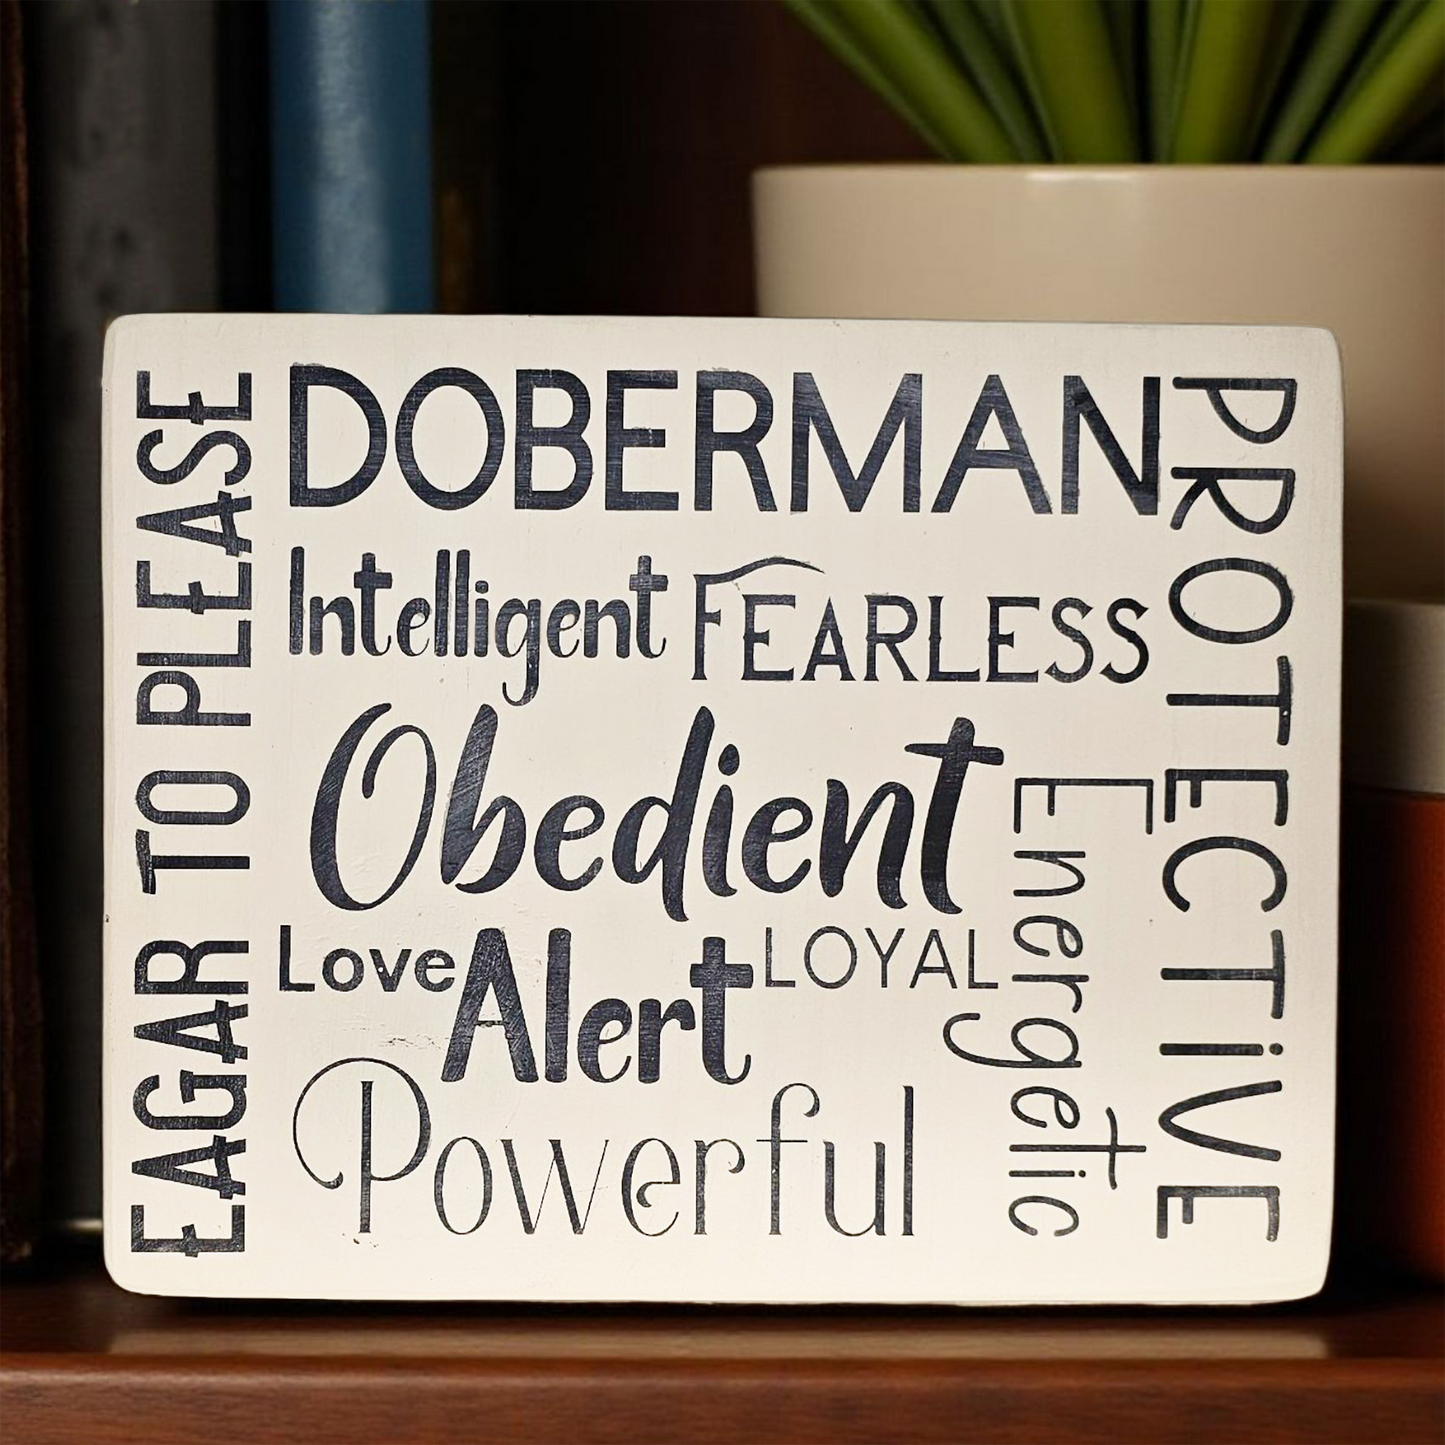 EAGAR TO PLEASE
DOBERMAN
Intelligent FEARLESS
Obedient
Love Alert LOYAL
Powerful
Energetic
PROTECTiVE